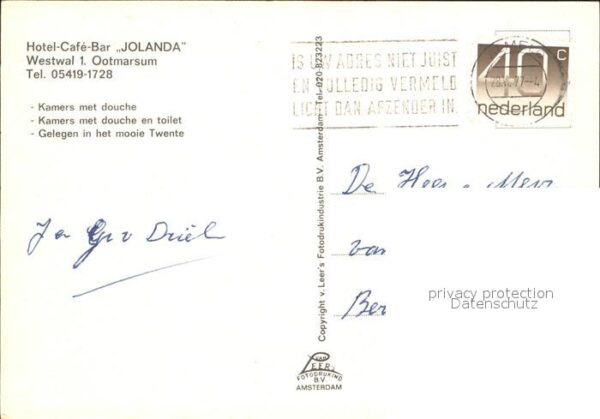 Hotel-Café-Bar „JOLANDA”
Westwal 1. Ootmarsum
Tel. 05419-1728
- Kamers met douche
- Kamers met douche en toilet
- Gelegen in het mooie Twente
IS UW ADRES NIET JUIST
EN VOLLEDIG VERMELD
LICHT DAN AFZENDER IN.
40 c
nederland
De Heer
van
Ber
privacy protection
Datenschutz
Copyright v. Leer's Fotodrukindustrie B.V. Amsterdam-Tel-020-823223
VAN
LEER
FOTODRUKIND
B.V.
AMSTERDAM